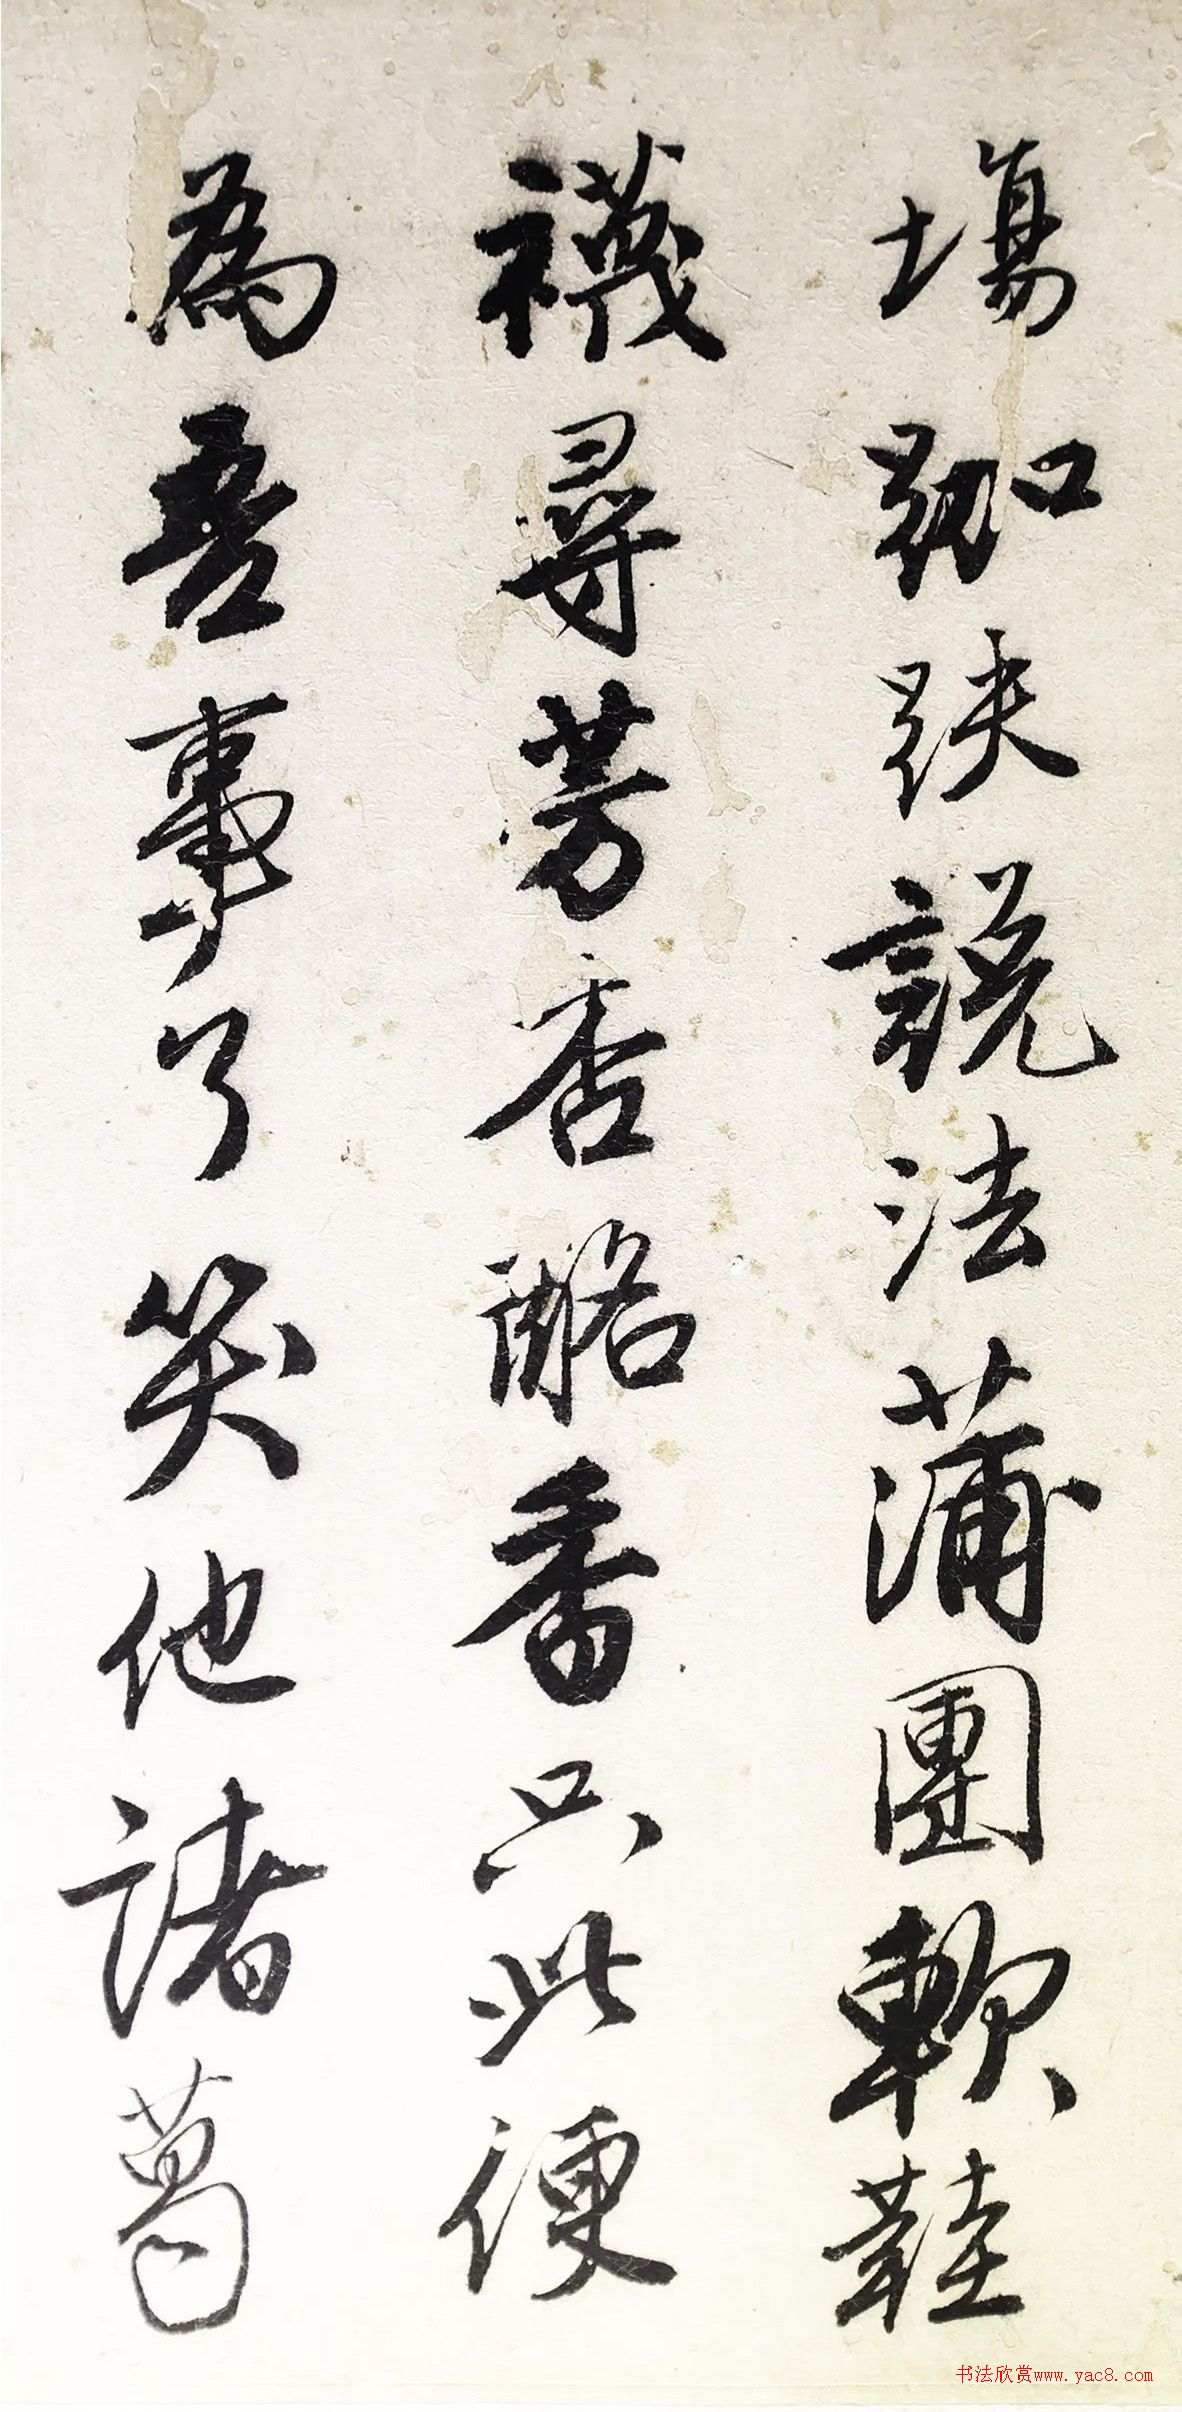 場跏趺説法蒲團軟鞋
襪尋芳杏酪香只此便
為吾事了笑他諸葛
书法欣赏www.yac8.com